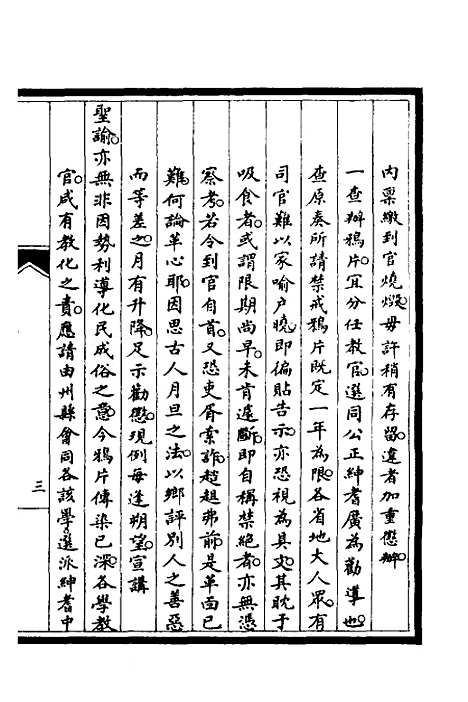 內稟繳到官燒燬毋許稍有存留違者加重懲辦
一查辦鴉片宜分任教官選同公正紳耆廣為勸導也
查原奏所請禁戒鴉片既定一年為限各省地大人眾有
司官難以家喻户曉即徧貼告示亦恐視為具文其耽于
吸食者或謂限期尚早未肯遽斷即自稱禁絕者亦無憑
察考若令到官自首又恐吏胥索詐趑趄弗前是革面已
難何論革心耶因思古人月旦之法以鄉評別人之善惡
而等差之月有升降足示勸懲現例每逢朔望宣講
聖諭亦無非因勢利導化民成俗之意今鴉片傳染已深各學教
官咸有教化之責應請由州縣會同各該學選派紳耆中
三